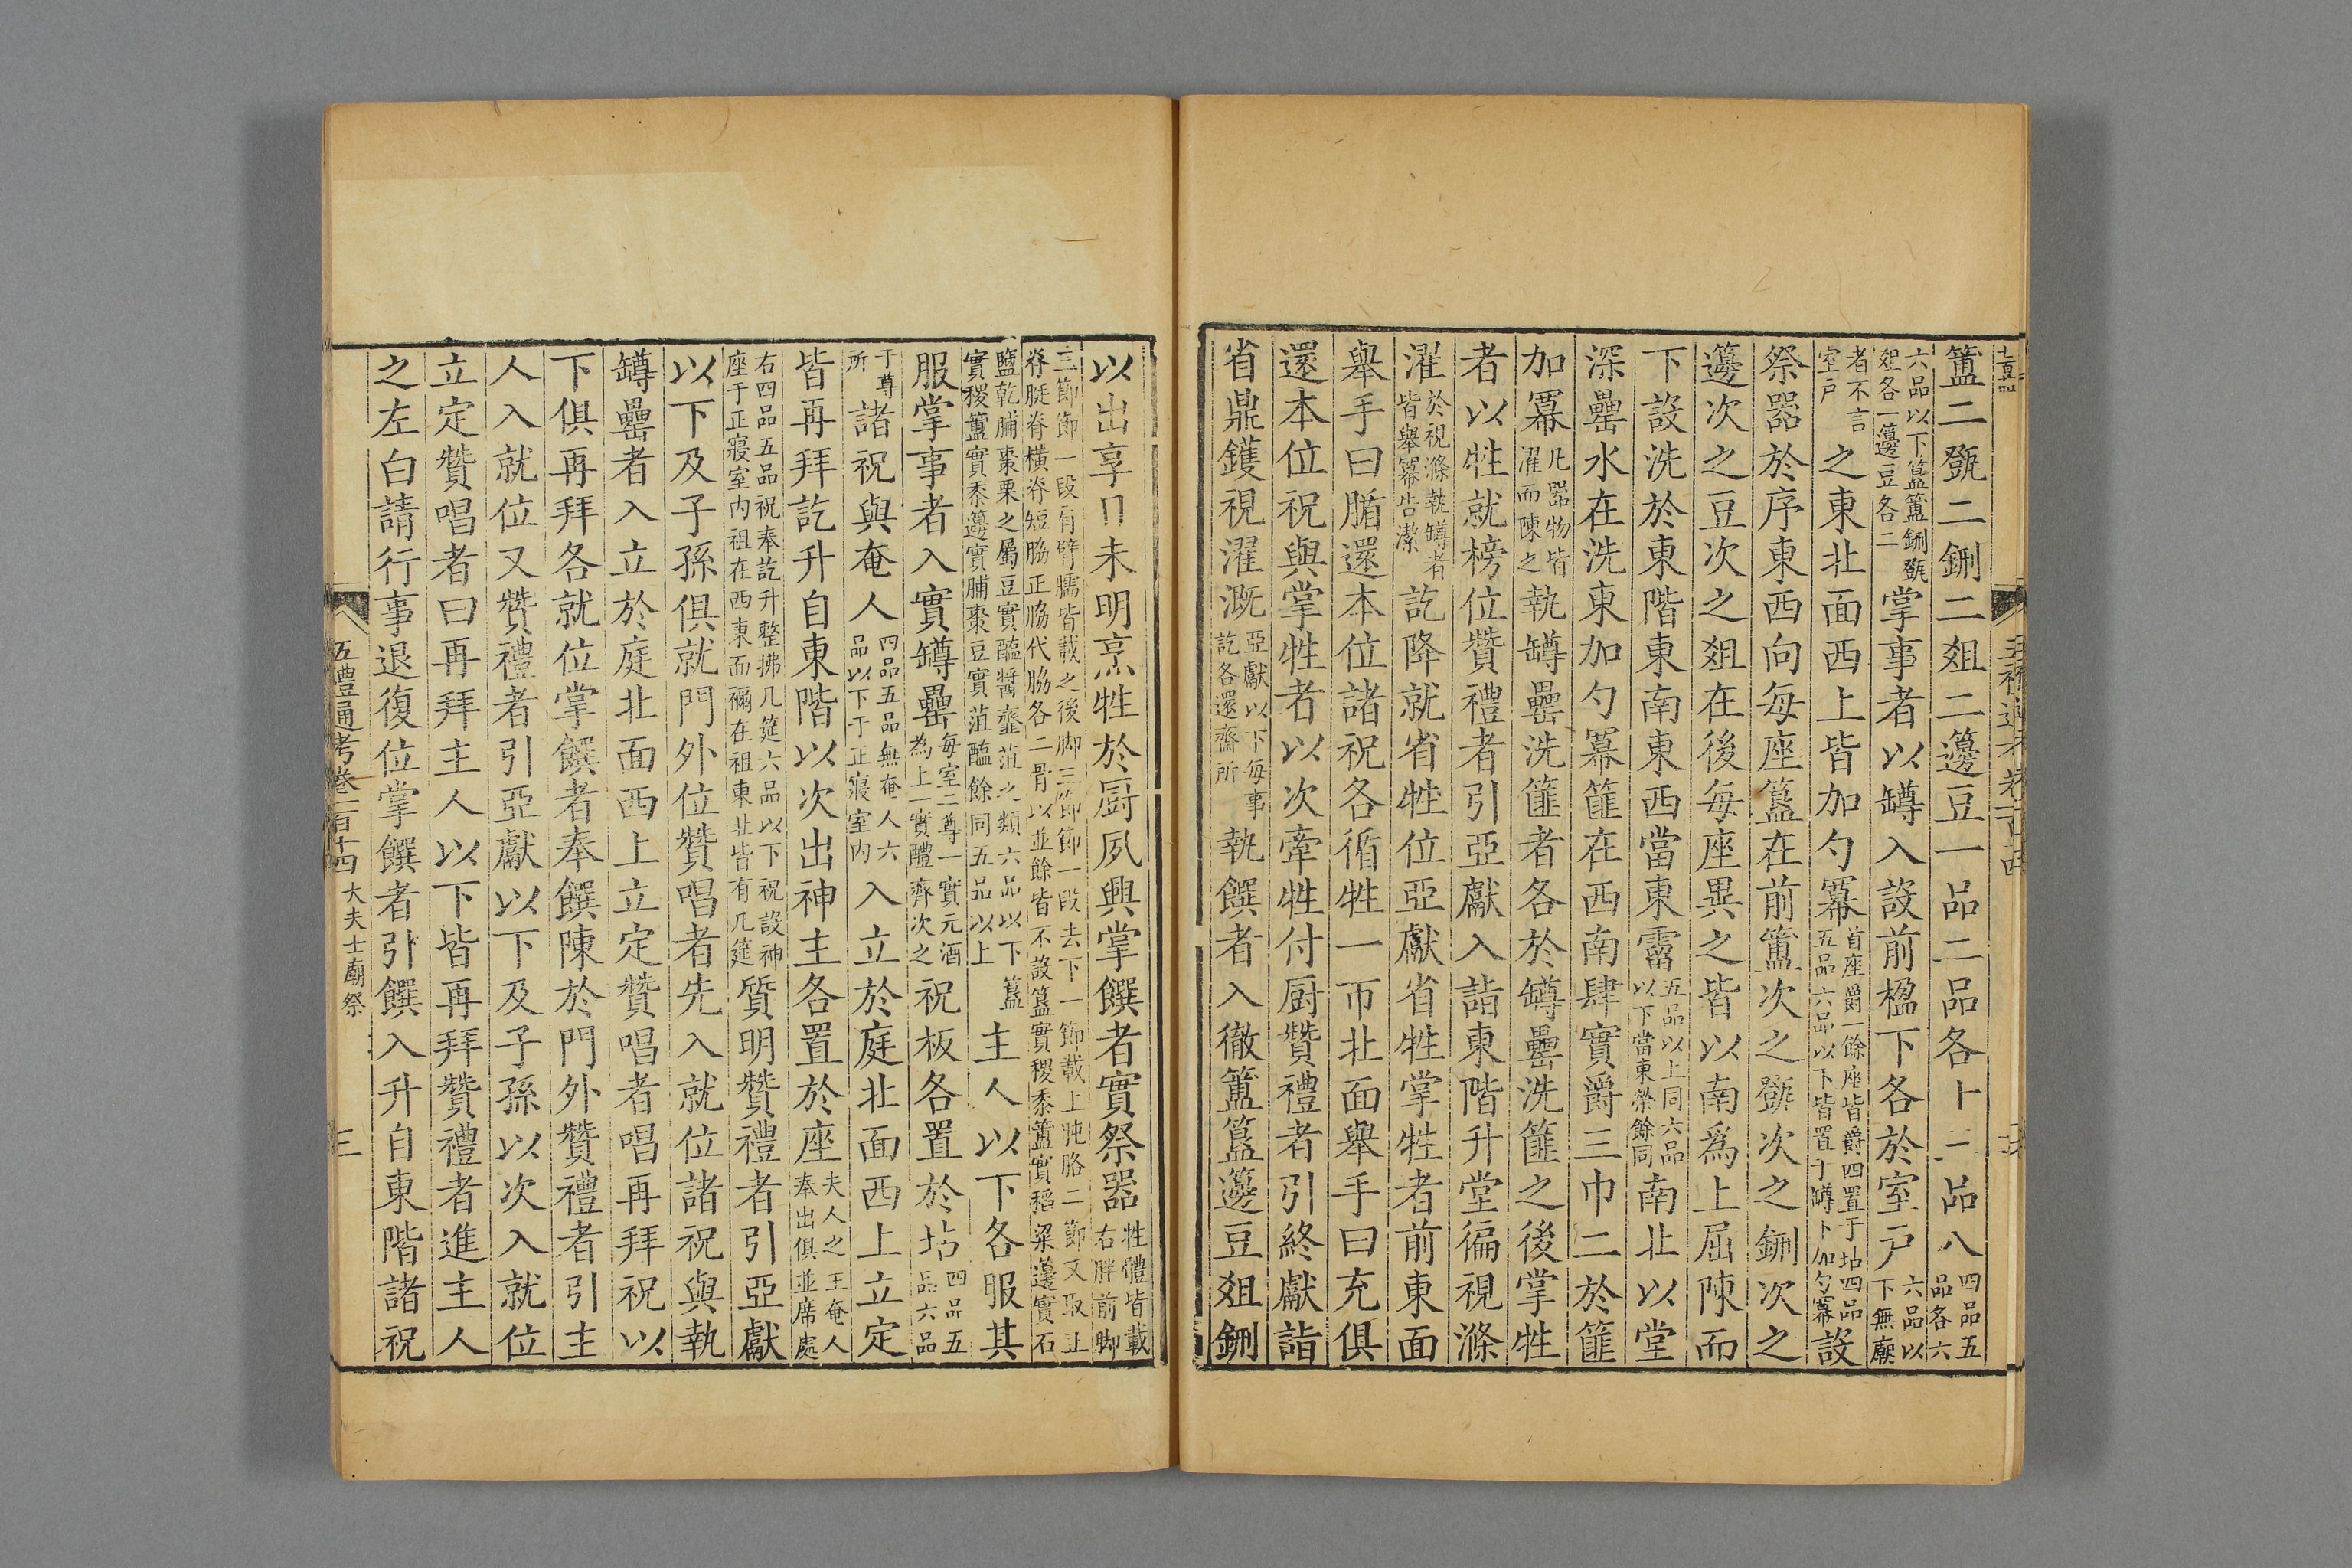 簠二㽅二鉶二俎二籩豆一品二品各十二三品八四品五品各六
六品以下簋簠鉶㽅俎各一籩豆各二掌事者以罇入設前楹下各於室戸六品以下無廟
者不言室戸之東北面西上皆加勺冪首座爵一餘座皆爵四置于坫四品五品六品以下皆置于罇下加勺冪設
祭器於序東西向每座簋在前簠次之㽅次之鉶次之
籩次之豆次之俎在後每座異之皆以南爲上屈陳而
下設洗於東階東南東西當東霤五品以上同六品以下當東榮餘同南北以堂
深罍水在洗東加勺冪篚在西南肆實爵三巾二於篚
加冪凡器物皆濯而陳之執罇罍洗篚者各於罇罍洗篚之後掌牲
者以牲就榜位贊禮者引亞獻入詣東階升堂徧視滌
濯於視滌執罇者皆舉冪告潔訖降就省牲位亞獻省牲掌牲者前東面
舉手曰腯還本位諸祝各循牲一帀北面舉手曰充俱
還本位祝與掌牲者以次牽牲付厨贊禮者引終獻詣
省鼎鑊視濯溉亞獻以下每事訖各還齋所執饌者入徹簠簋籩豆俎鉶
以出享日未明烹牲於厨夙興掌饌者實祭器牲體皆載右胖前脚
三節節一段肩臂臑皆載之後脚三節節一段去下一節載上肫胳二節又取正脊脡脊橫脊短脇正脇代脇各二骨以並餘皆不設簋實稷黍簠實稻粱籩實石
鹽乾脯棗栗之屬豆實醢醬虀菹之類六品以下簋實稷簠實黍籩實脯棗豆實菹醢餘同五品以上主人以下各服其
服掌事者入實罇罍每室二尊一實元酒為上一實醴齊次之祝板各置於坫四品五品六品
于尊所諸祝與奄人四品五品無奄人六品以下于正寢室内入立於庭北面西上立定
皆再拜訖升自東階以次出神主各置於座夫人之主奄人奉出俱並席處
右四品五品祝奉訖升整拂几筵六品以下祝設神座于正寢室内祖在西東面禰在祖東北皆有几筵質明贊禮者引亞獻
以下及子孫俱就門外位贊唱者先入就位諸祝與執
罇罍者入立於庭北面西上立定贊唱者唱再拜祝以
下俱再拜各就位掌饌者奉饌陳於門外贊禮者引主
人入就位又贊禮者引亞獻以下及子孫以次入就位
立定贊唱者曰再拜主人以下皆再拜贊禮者進主人
之左白請行事退復位掌饌者引饌入升自東階諸祝
五禮通考卷一百十四 大夫士廟祭 三